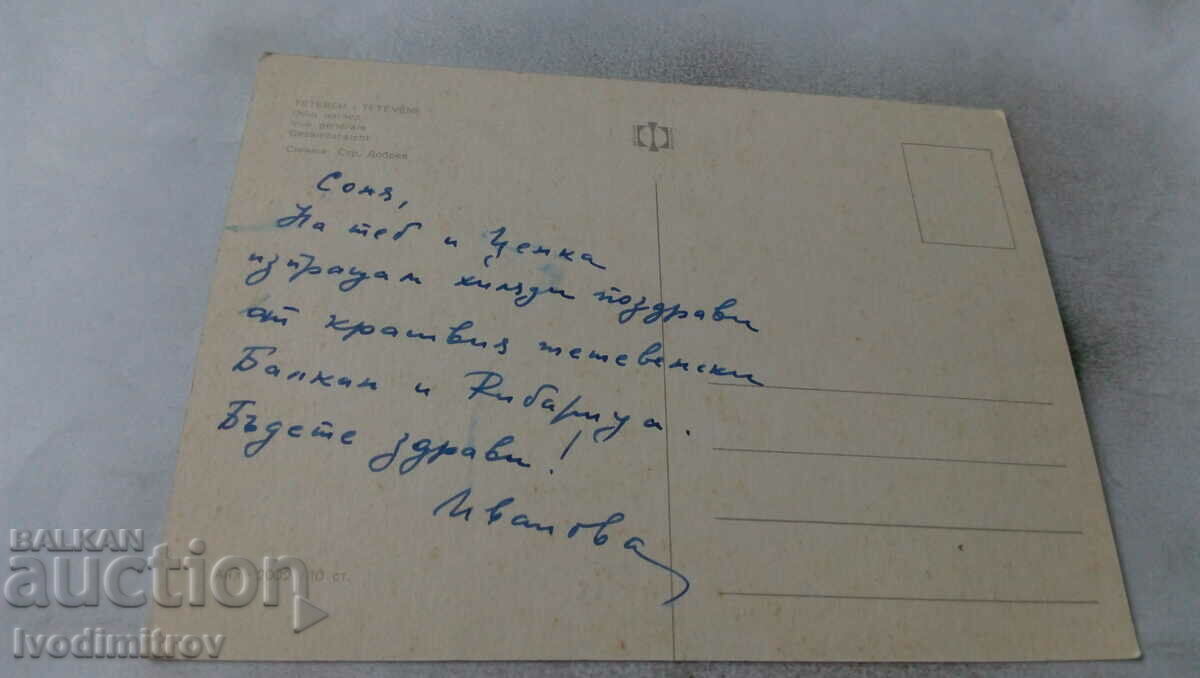 ТЕТЕВЕН · TETEVENE
Общ изглед
Vue générale
Gesamtansicht
Снимка Стр. Добрев
Соня,
На теб и Ценка
изпращам хиляди поздрави
от красивия тетевенски
Балкан и Рибарица.
Бъдете здрави!
Иванова
10 ст.
BALKAN
auction
Ivodimitrov